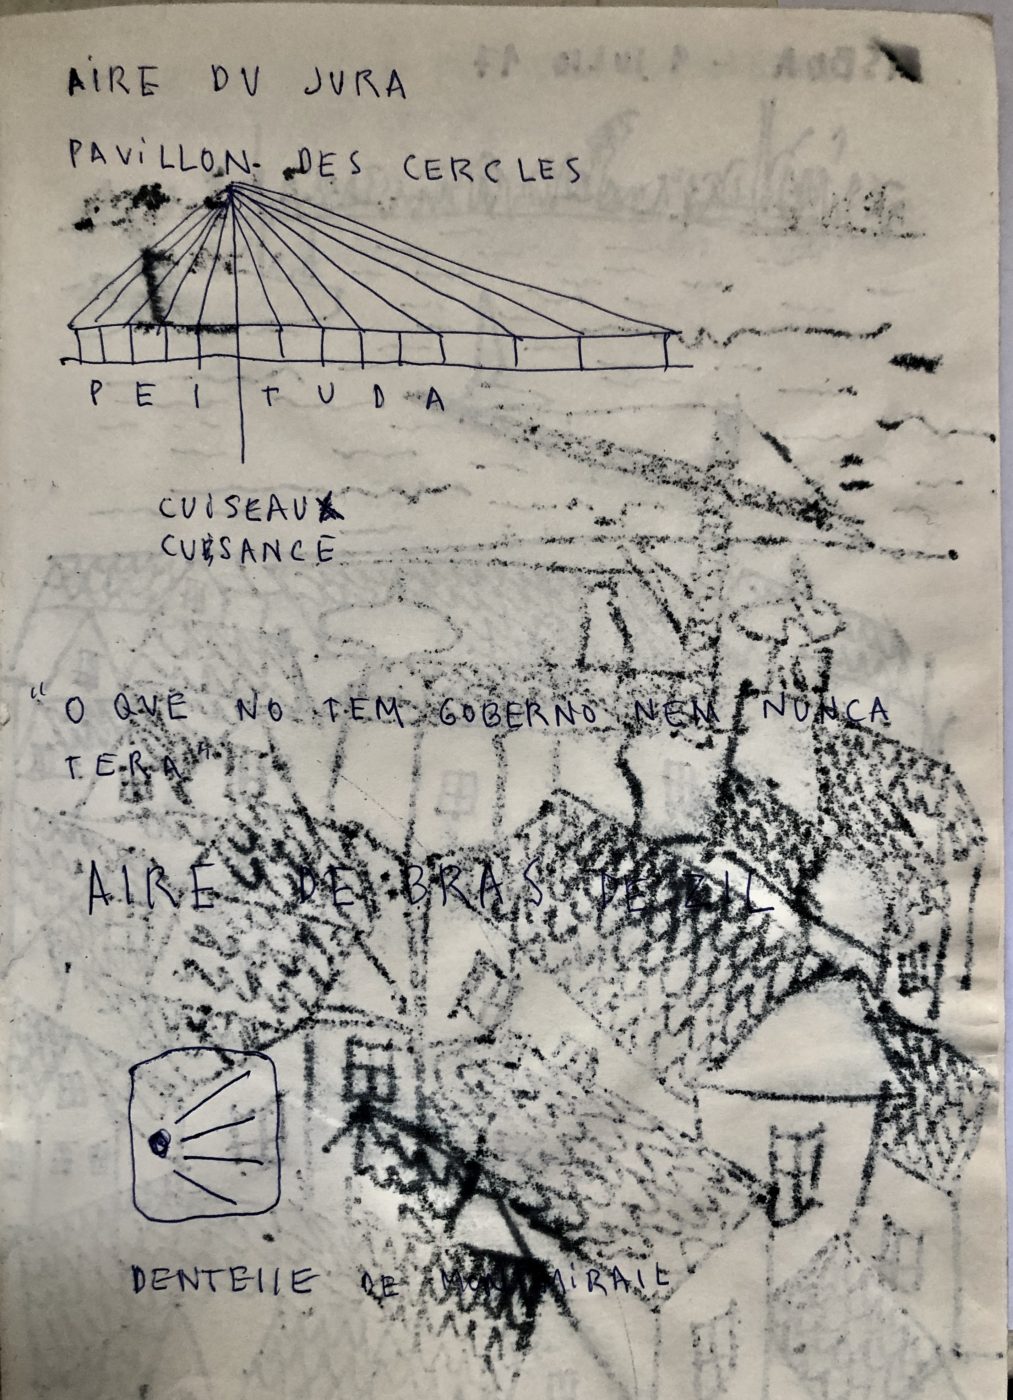 AIRE DU JURA
PAVILLON DES CERCLES
PEITUDA
CUISEAUX
CUISANCE
"O QUE NO TEM GOBERNO NEM NUNCA
TERA"
AIRE DE BRAS DE ZIL
DENTELLE DE MONTMIRAIL